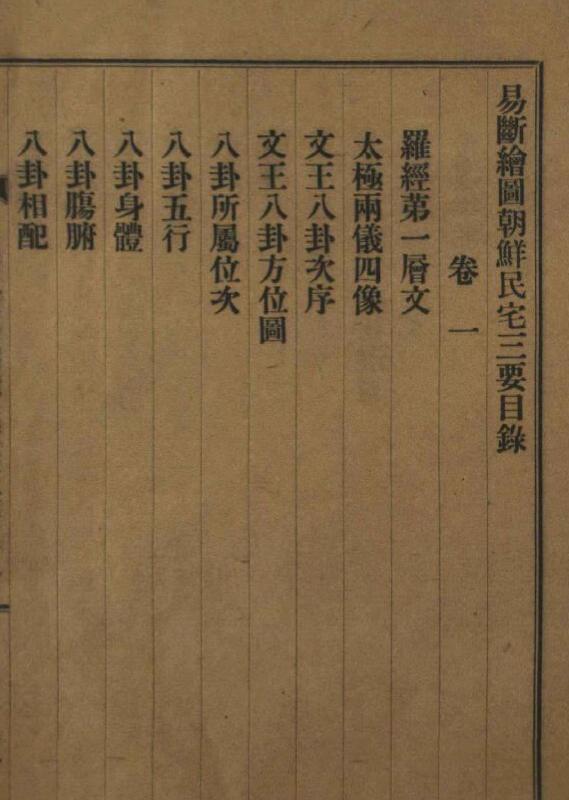 易斷繪圖朝鮮民宅三要目錄
卷一
羅經第一層文
太極兩儀四像
文王八卦次序
文王八卦方位圖
八卦所屬位次
八卦五行
八卦身體
八卦膓腑
八卦相配